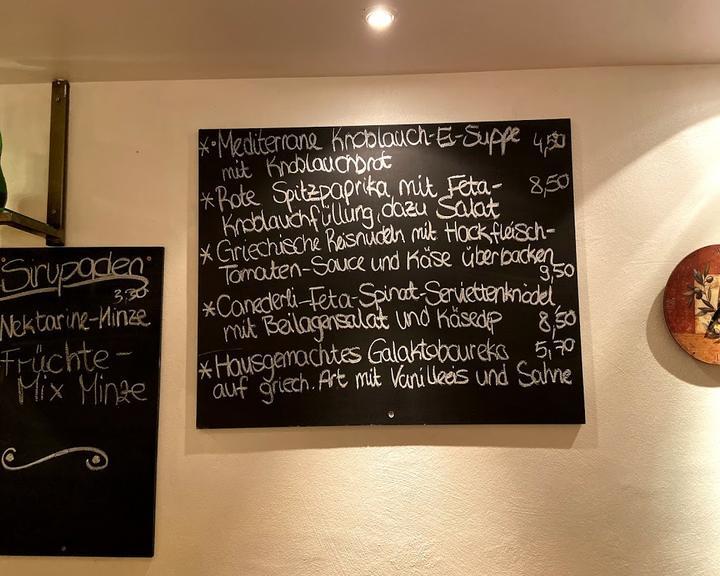 * Mediterrane Knoblauch-Ei-Suppe 4,50
mit Knoblauchbrot
* Rote Spitzpaprika mit Feta- 8,50
Knoblauchfüllung, dazu Salat
* Griechische Reisnudeln mit Hackfleisch-
Tomaten-Sauce und Käse überbacken
9,50
* Canederli-Feta-Spinat-Serviettenknödel
mit Beilagensalat und Käsedip 8,50
* Hausgemachtes Galaktoboureko 5,70
auf griech. Art mit Vanilleeis und Sahne
Sirupaden
3,30
Nektarine-Minze
Früchte-
Mix Minze